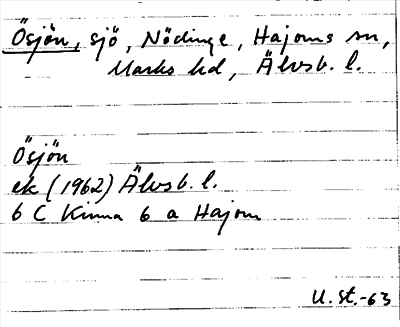 Ösjön, sjö, Nödinge, Hajoms sn,
Marks hd, Älvsb. l.
Ösjön
ek (1962) Älvsb. l.
6 C Kinna 6 a Hajom
U. St. -63